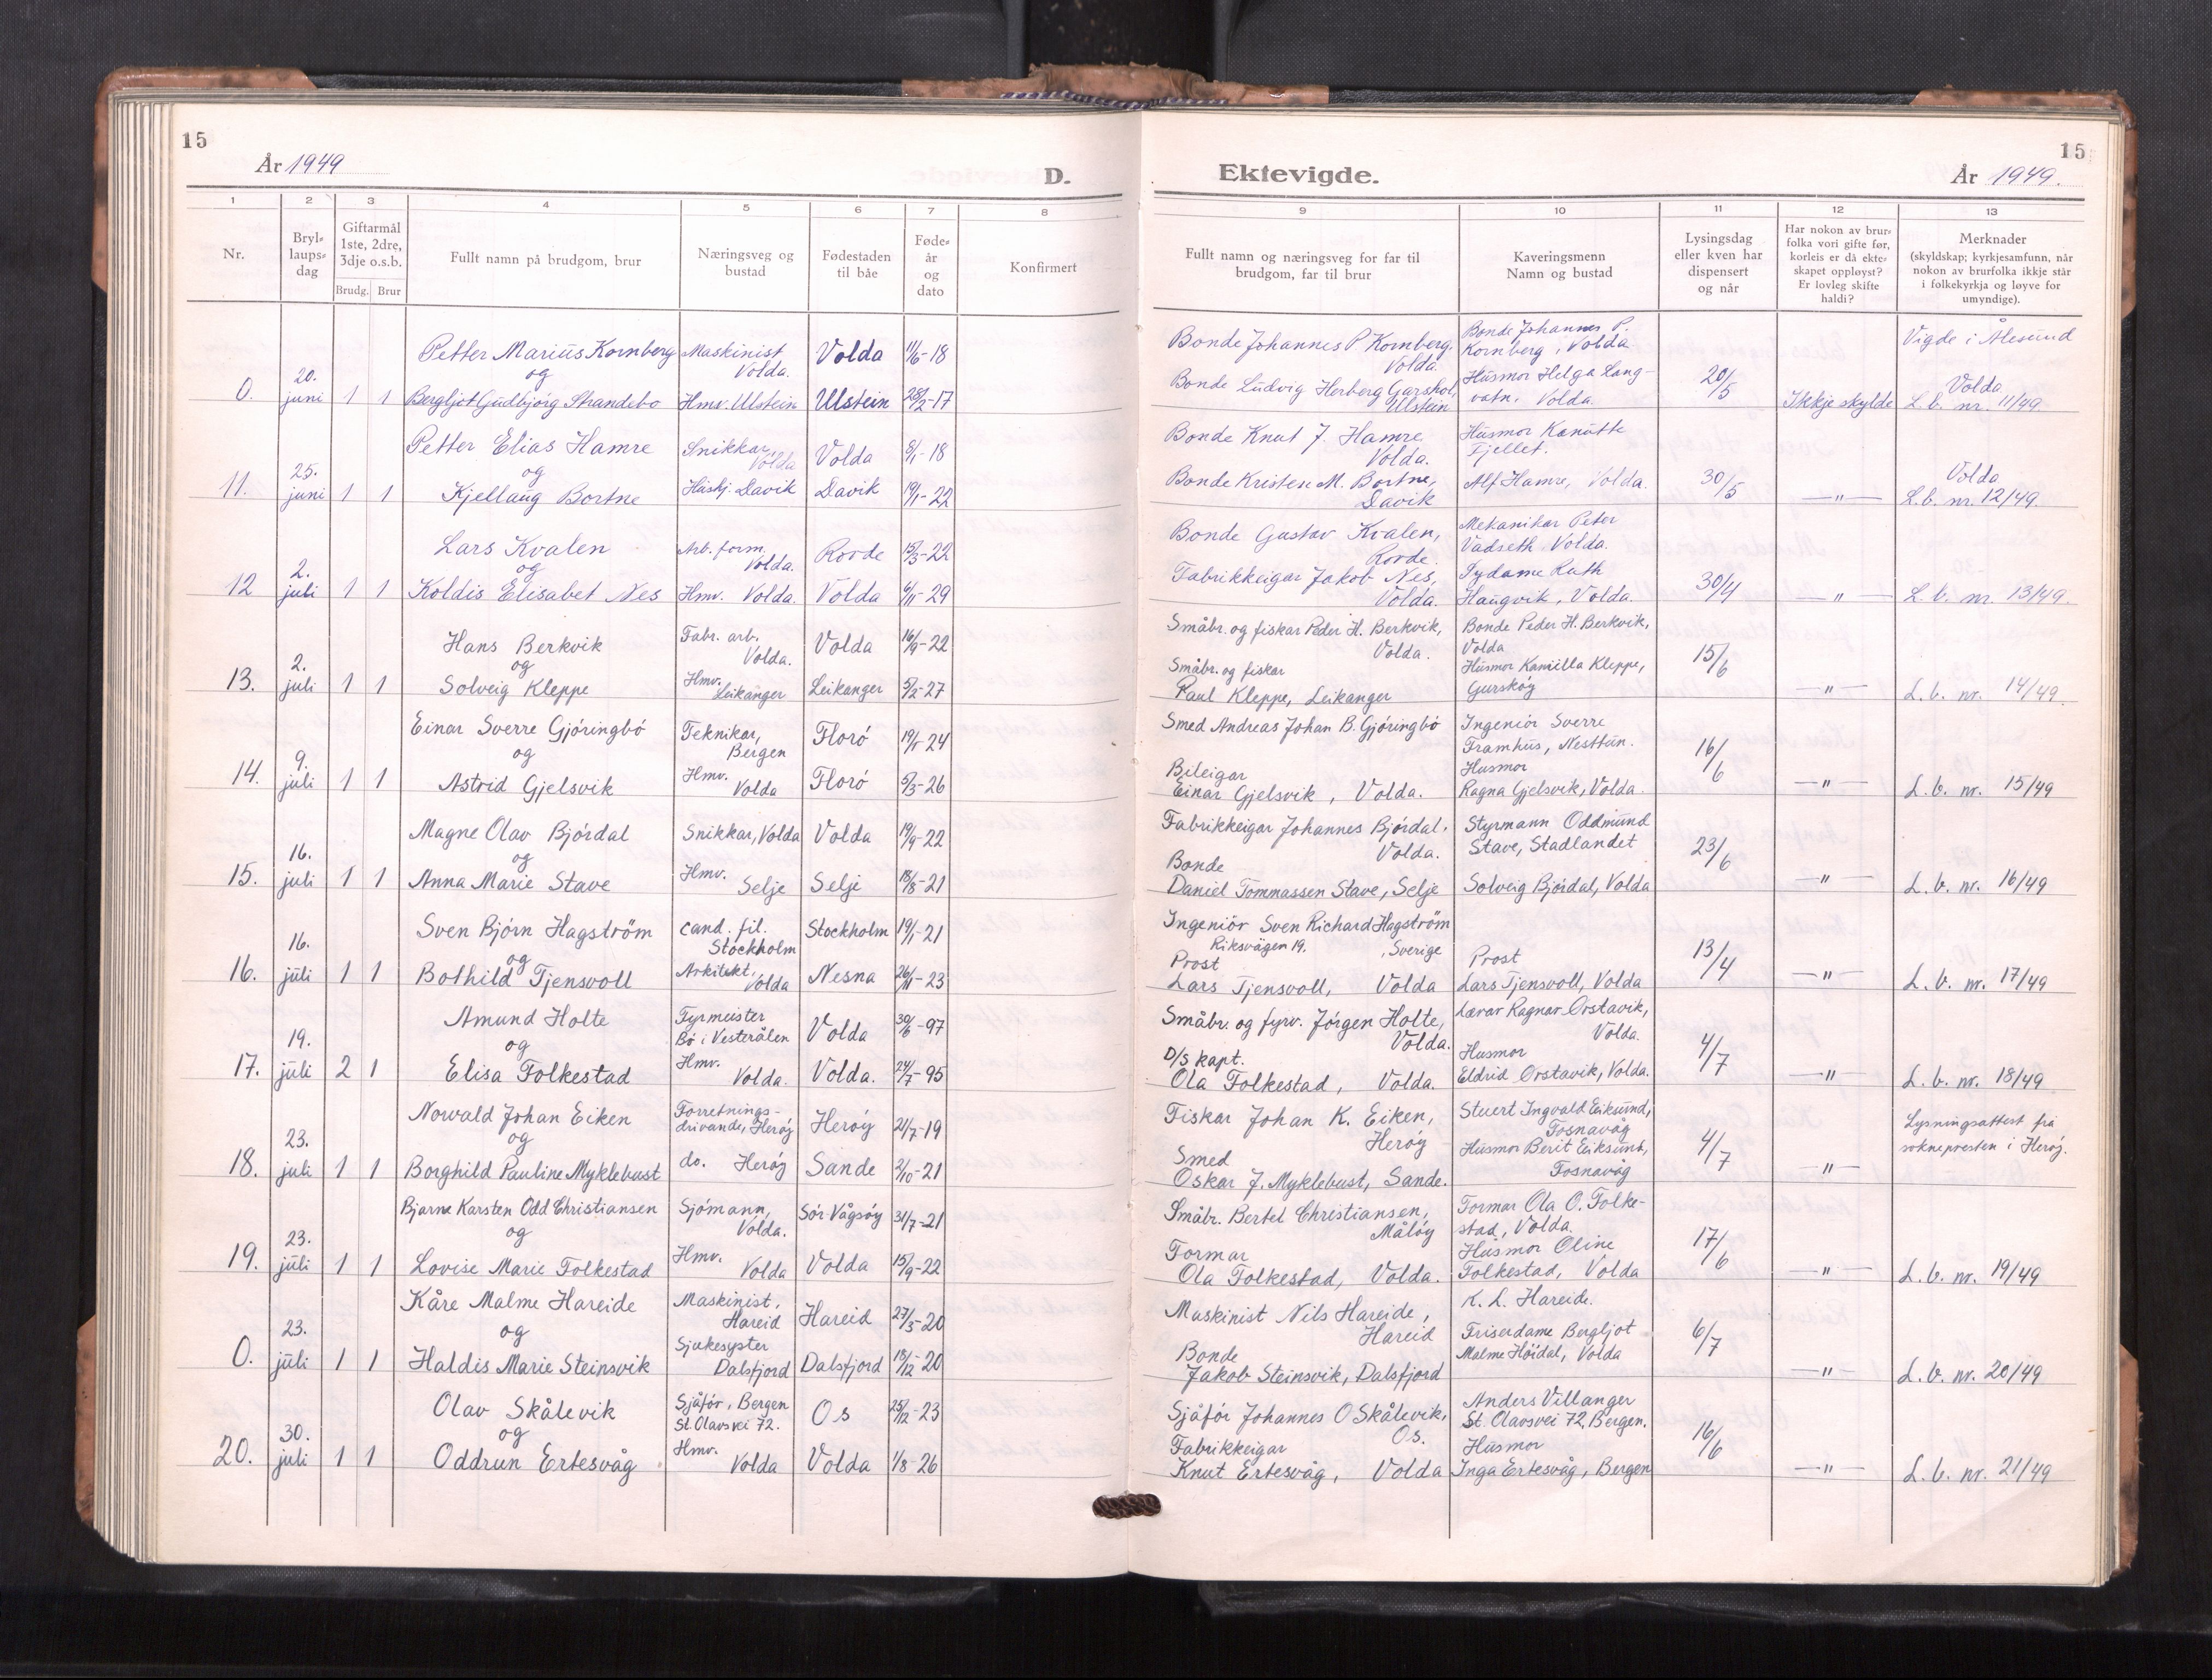 15
År 1949
D.
1 2 3 4 5 6 7 8
Nr.
Bryl-
laups-
dag
Giftarmål
1ste, 2dre,
3dje o.s.b.
Brudg. Brur
Fullt namn på brudgom, brur
Næringsveg og
bustad
Fødestaden
til båe
Føde-
år
og
dato
Konfirmert
Petter Mariüs Kornberg Maskinist Volda 11/6-18
Volda.
og
0. 20. juni 1 1 Bergljot Gudbjörg Strandebo Hmv. Ulstein Ulstein 28/2-17
Petter Elias Hamre Snikkar, Volda 8/1-18
Volda
og
11. 25. juni 1 1 Kjellaug Bortne Hushj. Davik Davik 19/1-22
Lars Kvalen Arb. form. Rovde 15/3-22
Volda.
og
12 2. juli 1 1 Koldis Elisabet Nes Hmv. Volda. Volda 6/11-29
Hans Berkvik Fabr. arb. Volda 16/9-22
Volda.
og
13. 2. juli 1 1 Solveig Kleppe Hmv. Leikanger Leikanger 5/2-27
Einar Sverre Gjöringbö Teknikar, Florö 24
Bergen
og
14. 9. juli 1 1 Astrid Gjelsvik Hmv. Volda Florö 5/3-26
Magne Olav Björdal Snikkar, Volda Volda 19/9-22
og
15. 16. juli 1 1 Anna Marie Stave Hmv. Selje Selje 18/8-21
Sven Björn Hagström cand. fil. Stockholm 19/1-21
Stockholm
og
16. 16. juli 1 1 Bothild Tjensvoll Arkitekt, Volda Nesna 26/11-23
Amund Holte Fyrmeister Volda 30/6-97
Bö i Vesterålen
og
17. 19. juli 2 1 Elisa Folkestad Hmv. Volda. Volda. 24/7-95
Norvald Johan Eiken Forretnings- Heröy 21/7-19
drivande, Heröy
og
18. 23. juli 1 1 Borghild Pauline Myklebust do. Heröy Sande 2/10-21
Bjarne Karsten Odd Christiansen Sjömann, Sör-Vågsöy 31/7-21
Volda.
og
19. 23. juli 1 1 Lovise Marie Folkestad Hmv. Volda Volda 15/9-22
Kåre Malme Hareide Maskinist, Hareid 27/5-20
Hareid
og
0. 23. juli 1 1 Haldis Marie Steinsvik Sjukesyster Dalsfjord Dalsfjord 18/12-20
Olav Skålevik Sjåför, Bergen Os 25/12-23
St. Olavs vei 72.
og
20. 30. juli 1 1 Oddrun Ertesvåg Hmv. Volda Volda 1/8-26
15
Ektevigde.
År 1949.
9 10 11 12 13
Fullt namn og næringsveg for far til
brudgom, far til brur
Kaveringsmenn
Namn og bustad
Lysingsdag
eller kven har
dispensert
og når
Har nokon av brur-
folka vori gifte før,
korleis er då ekte-
skapet oppløyst?
Er lovleg skifte
haldi?
Merknader
(skyldskap; kyrkjesamfunn, når
nokon av brurfolka ikkje står
i folkekyrkja og løyve for
umyndige).
Bonde Johannes P Kornberg. Bonde Johannes P. Vigde i Ålesund
Volda. Kornberg, Volda
Bonde Ludvig Herberg Garshol, Husmor Helga Lang- 20/5 Volda
Ulstein vatn. Volda. Ikkje skylde L.b. nr. 11/49
Bonde Knut J. Hamre Husmor Kanutte
Volda. Fjellet.
Bonde Kristen M. Bortne, Alf Hamre, Volda. 30/5 Volda
Davik —"— L.b. nr. 12/49.
Bonde Gustav Kvalen, Mekanikar Peter
Rovde. Vadseth Volda.
Fabrikkeigar Jakob Nes, Tydame Ruth 30/4
Volda. Haugvik, Volda. —"— L.b. nr. 13/49.
Småbr. og fiskar Peder H. Berkvik, Bonde Peder H. Berkvik,
Volda. Volda 15/6
Småbr. og fiskar Husmor Kamilla Kleppe,
Paul Kleppe, Leikanger Gursköy —"— L.b. nr. 14/49.
Smed Andreas Johan B. Gjöringbö Ingeniör Sverre
Framhus, Nesttun. 16/6
Bileigar Husmor
Einar Gjelsvik, Volda. Ragna Gjelsvik, Volda. —"— L.b. nr. 15/49
Fabrikkeigar Johannes Björdal, Styrmann Oddmund
Volda. Stave, Stadlandet 23/6
Bonde
Daniel Tommassen Stave, Selje Solveig Björdal, Volda —"— L.b. nr. 16/49
Ingeniör Sven Richard Hagström
Riksvägen 19. , Sverige 13/4
Prost Prost
Lars Tjensvoll, Volda Lars Tjensvoll, Volda —"— L.b. nr. 17/49
Småbr. og fyrv. Jörgen Holte, Lærar Ragnar Örstavik,
Volda. Volda. 4/7
D/S kapt. Husmor
Ola Folkestad, Volda. Eldrid Örstavik, Volda. —"— L.b. nr. 18/49
Fiskar Johan K. Eiken, Stuert Ingvald Eiksund, Lysningsattest frå
Heröy Fosnavåg 4/7 soknepresten i Heröy.
Smed Husmor Berit Eiksund,
Oskar J. Myklebust, Sande. Fosnavåg —"—
Småbr. Bertel Christiansen, Formar Ola O. Folke-
Målöy stad, Volda. 17/6
Formar Husmor Oline
Ola Folkestad, Volda. Folkestad, Volda —"— L.b. nr. 19/49
Maskinist Nils Hareide, K. L. Hareide.
Hareid Friserdame Bergljot 6/7
Bonde Malme Höidal, Volda
Jakob Steinsvik, Dalsfjord —"— L.b. nr. 20/49
Sjåför Johannes O Skålevik, Anders Villanger
Os. St. Olavsvei 72, Bergen. 16/6
Fabrikkeigar Husmor
Knut Ertesvåg, Volda Inga Ertesvåg, Bergen —"— L.b. nr. 21/49